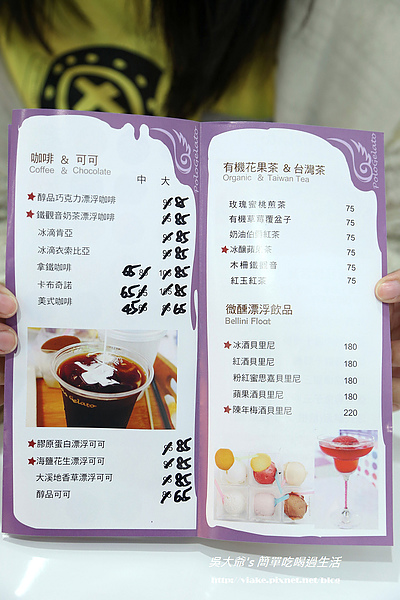 咖啡 & 可可
Coffee & Chocolate
中 大
★醇品巧克力漂浮咖啡 85
★鐵觀音奶茶漂浮咖啡 85
冰滴肯亞 85
冰滴衣索比亞 85
拿鐵咖啡 65 85
卡布奇諾 65 85
美式咖啡 45 65
★膠原蛋白漂浮可可 85
★海鹽花生漂浮可可 85
大溪地香草漂浮可可 85
醇品可可 65
PoloGelato
有機花果茶 & 台灣茶
Organic & Taiwan Tea
玫瑰蜜桃煎茶 75
有機草莓覆盆子 75
奶油伯爵紅茶 75
★冰釀蘋果茶 75
木柵鐵觀音 75
紅玉紅茶 75
微醺漂浮飲品
Bellini Float
★冰酒貝里尼 180
紅酒貝里尼 180
粉紅蜜思嘉貝里尼 180
蘋果酒貝里尼 180
★陳年梅酒貝里尼 220
PoloGelato
吳大爺's 簡單吃喝過生活